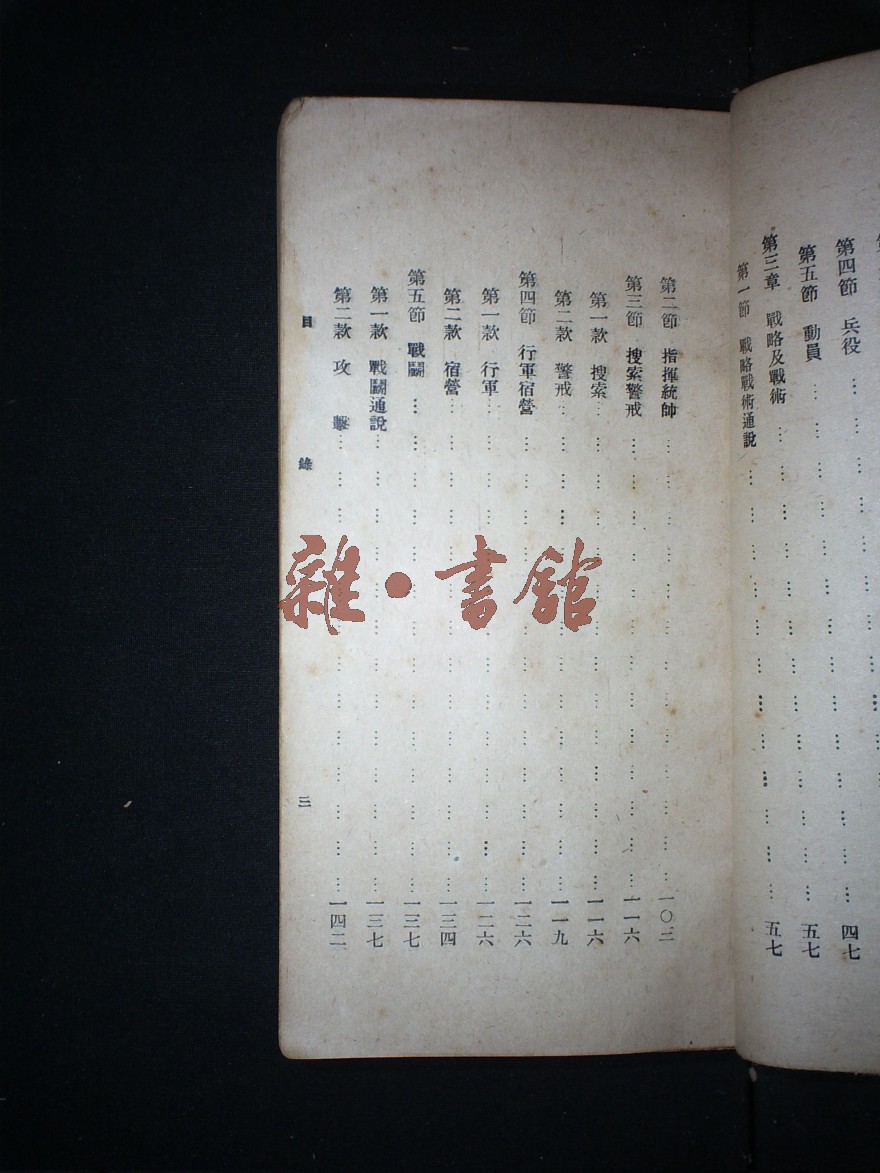 第四節 兵役 … … … … … … … … … … … … 四七
第五節 動員 … … … … … … … … … … … … 五七
第三章 戰略及戰術 … … … … … … … … … … … …
第一節 戰略戰術通說 … … … … … … … … … … … … 五七
第二節 指揮統帥 … … … … … … … … … … … … 一〇二
第三節 搜索警戒 … … … … … … … … … … … … 一一六
第一款 搜索 … … … … … … … … … … … … … 一一六
第二款 警戒 … … … … … … … … … … … … … 一一九
第四節 行軍宿營 … … … … … … … … … … … … 一二六
第一款 行軍 … … … … … … … … … … … … … 一二六
第二款 宿營 … … … … … … … … … … … … … 一三四
第五節 戰鬬 … … … … … … … … … … … … … 一三七
第一款 戰鬬通說 … … … … … … … … … … … … 一三七
第二款 攻擊 … … … … … … … … … … … … 一四二
目錄 三
雜·書館